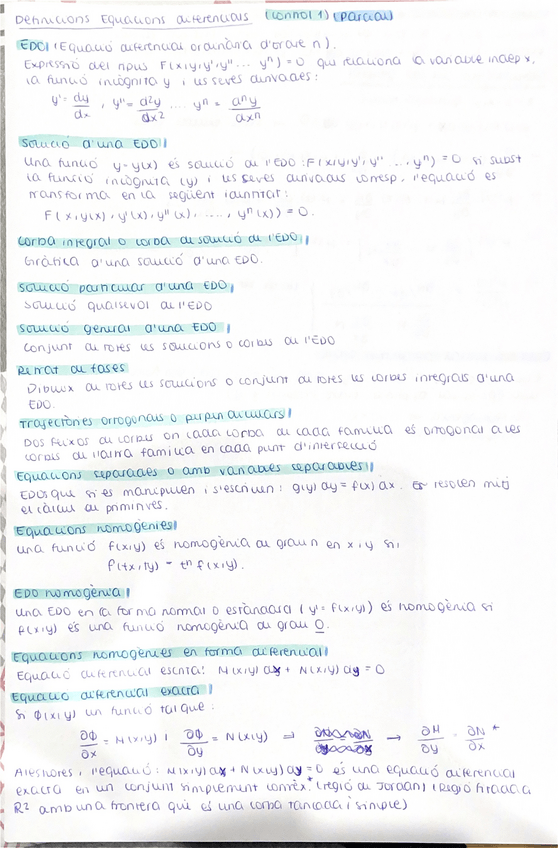 Definicions Equacions diferencials (Control 1) (Parcial)
EDO (Equació diferencial ordinària d'ordre n).
Expressió del tipus F(x,y,y',y''... yⁿ) = 0 que relaciona la variable indep x,
la funció incògnita y i les seves derivades:
y' = dy/dx , y'' = d²y/dx² ... yⁿ = dⁿy/dxⁿ
Solució d'una EDO
Una funció y=y(x) és solució de l'EDO: F(x,y,y',y'' ... , yⁿ) = 0 si subst
la funció incògnita (y) i les seves derivades corresp, l'equació es
transforma en la següent identitat:
F(x,y(x),y'(x),y''(x), ...., yⁿ(x)) = 0.
Corba integral o corba de solució de l'EDO
Gràfica d'una solució d'una EDO.
Solució particular d'una EDO
Solució qualsevol de l'EDO
Solució general d'una EDO
Conjunt de totes les solucions o corbes de l'EDO
Retrat de fases
Dibuix de totes les solucions o conjunt de totes les corbes integrals d'una
EDO.
Trajectòries ortogonals o perpendiculars
Dos feixos de corbes on cada corba de cada família és ortogonal a les
corbes de l'altra família en cada punt d'intersecció
Equacions separades o amb variables separables
EDOs que si es manipulen i s'escriuen: g(y) dy = f(x) dx. Es resolen mitj
el càlcul de primitives.
Equacions homogènies
Una funció f(x,y) és homogènia de grau n en x,y si,
f(tx,ty) = tⁿ f(x,y).
EDO homogènia
Una EDO en la forma normal o estàndard (y' = f(x,y)) és homogènia si
f(x,y) és una funció homogènia de grau 0.
Equacions homogènies en forma diferencial
Equació diferencial escrita: M(x,y) dx + N(x,y) dy = 0
Equació diferencial exacta
Si Φ(x,y) un funció tal que:
∂Φ/∂x = M(x,y) i ∂Φ/∂y = N(x,y) ⇒ → ∂M/∂y = ∂N/∂x *
Aleshores, l'equació: M(x,y) dx + N(x,y) dy = 0 és una equació diferencial
exacta en un conjunt simplement connex.* (regió de Jordan) (Regió fitada a
R² amb una frontera que és una corba tancada i simple)